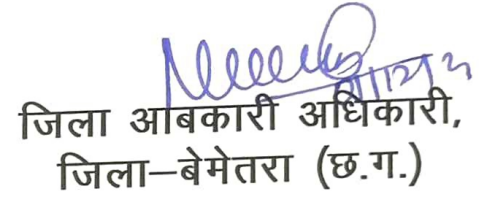 जिला आबकारी अधिकारी,
जिला–बेमेतरा (छ.ग.)